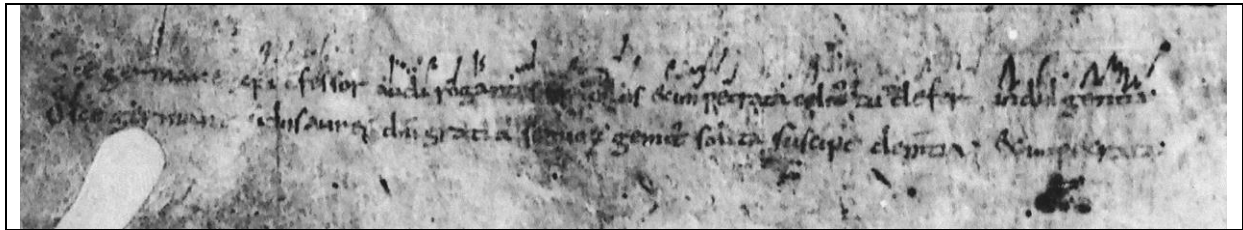 Sce germane xpi cfessor audi rogantes seruulos & impetrata celit᷒ tu defer indulgentia
O sce germane sidus aureū dn̄i gratia seruoꝝ gemit᷒ solita suscipe clem̄tia; & impetrata